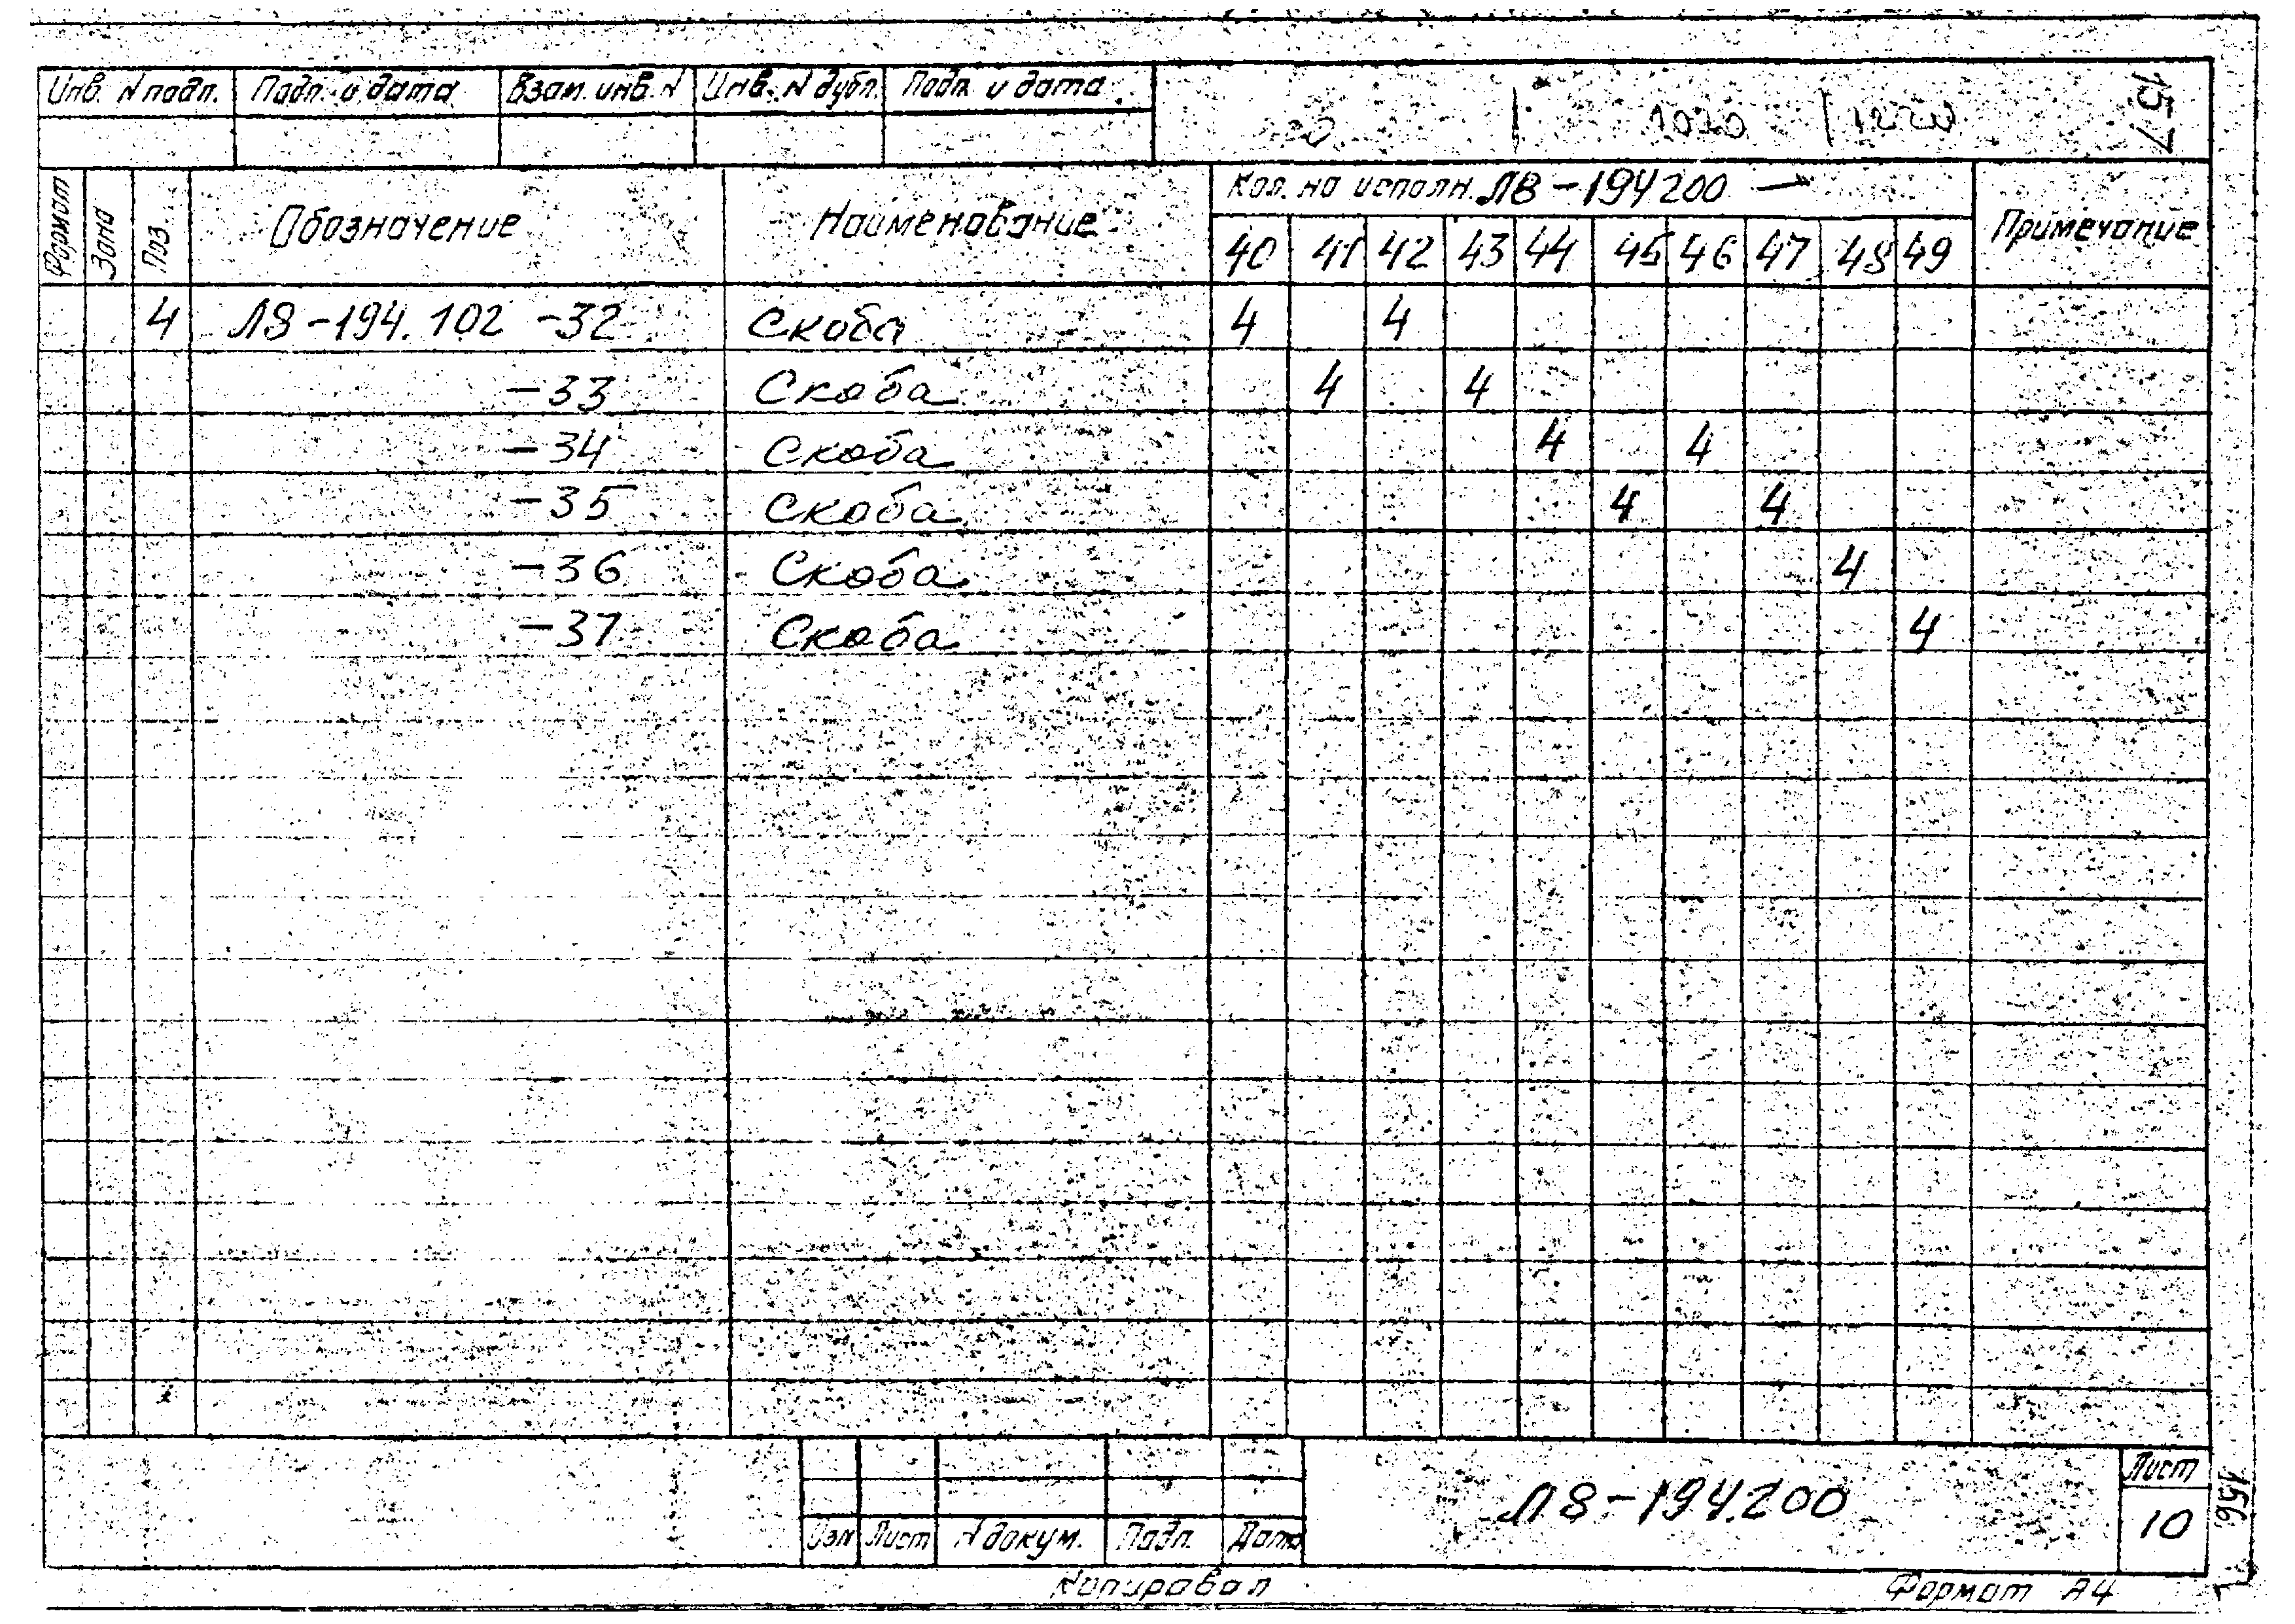 Инв. N подл. Подп. и дата Взам. инв. N Инв. N дубл. Подп. и дата
1020
157
Формат Зона Поз. Обозначение Наименование Кол. на исполн. Л8-194200 - Примечание
40 41 42 43 44 45 46 47 48 49
4 Л8-194.102 -32 Скоба 4 4
-33 Скоба 4 4
-34 Скоба 4 4
-35 Скоба 4 4
-36 Скоба 4
-37 Скоба 4
Изм Лист N докум. Подп. Дата Л8-194.200 Лист
10
Копировал Формат А4